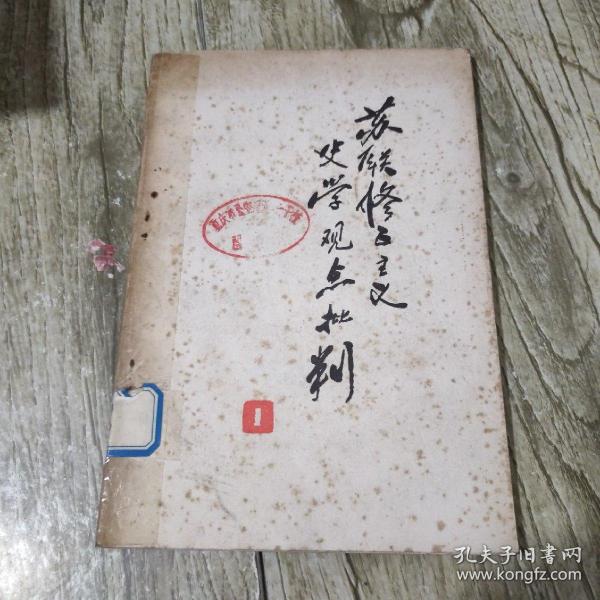 苏联修正主义
史学观点批判
1
孔夫子旧书网
www.kongfz.com